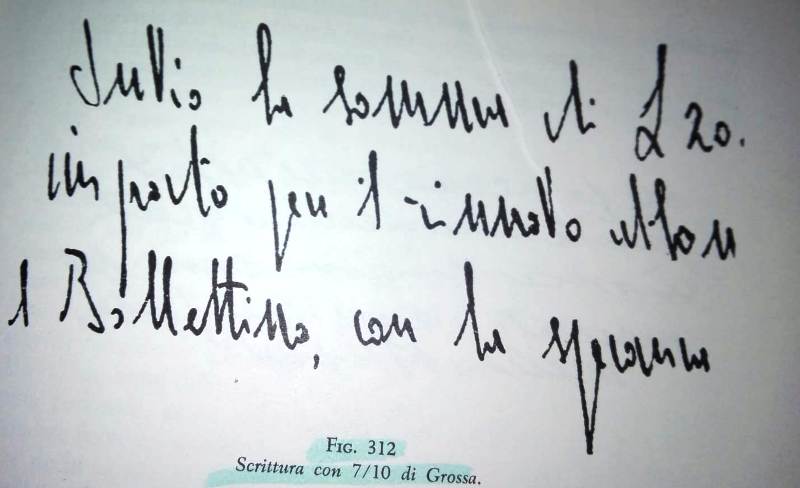 Invio la somma di £ 20.
importo per il rinnovo abbon
l Bollettino, con la speranza
FIG. 312
Scrittura con 7/10 di Grossa.